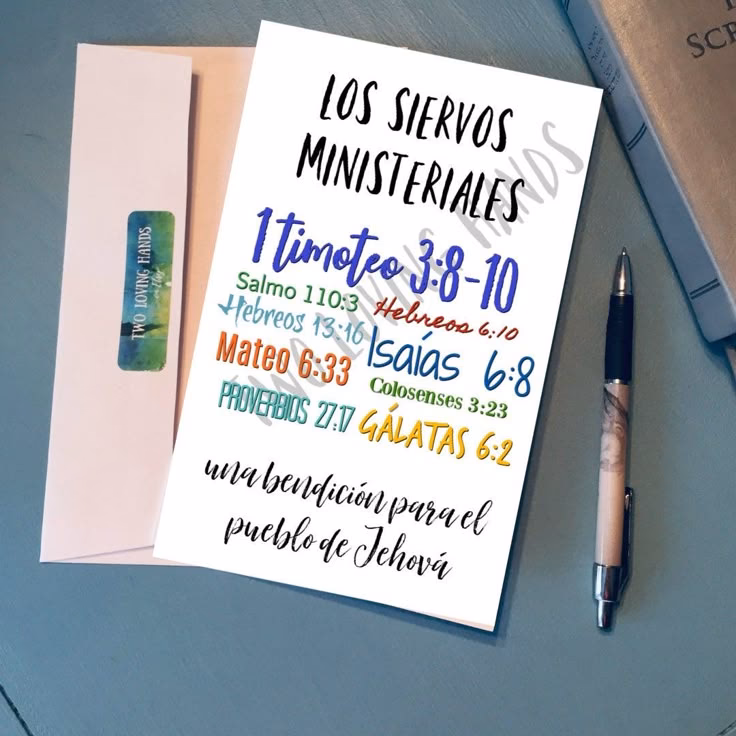 LOS SIERVOS
MINISTERIALES
1 Timoteo 3:8-10
Salmo 110:3
Hebreos 6:10
Hebreos 13:16
Isaías 6:8
Mateo 6:33
Colosenses 3:23
PROVERBIOS 27:17
GÁLATAS 6:2
una bendición para el
pueblo de Jehová
TWO LOVING HANDS
TWO LOVING HANDS